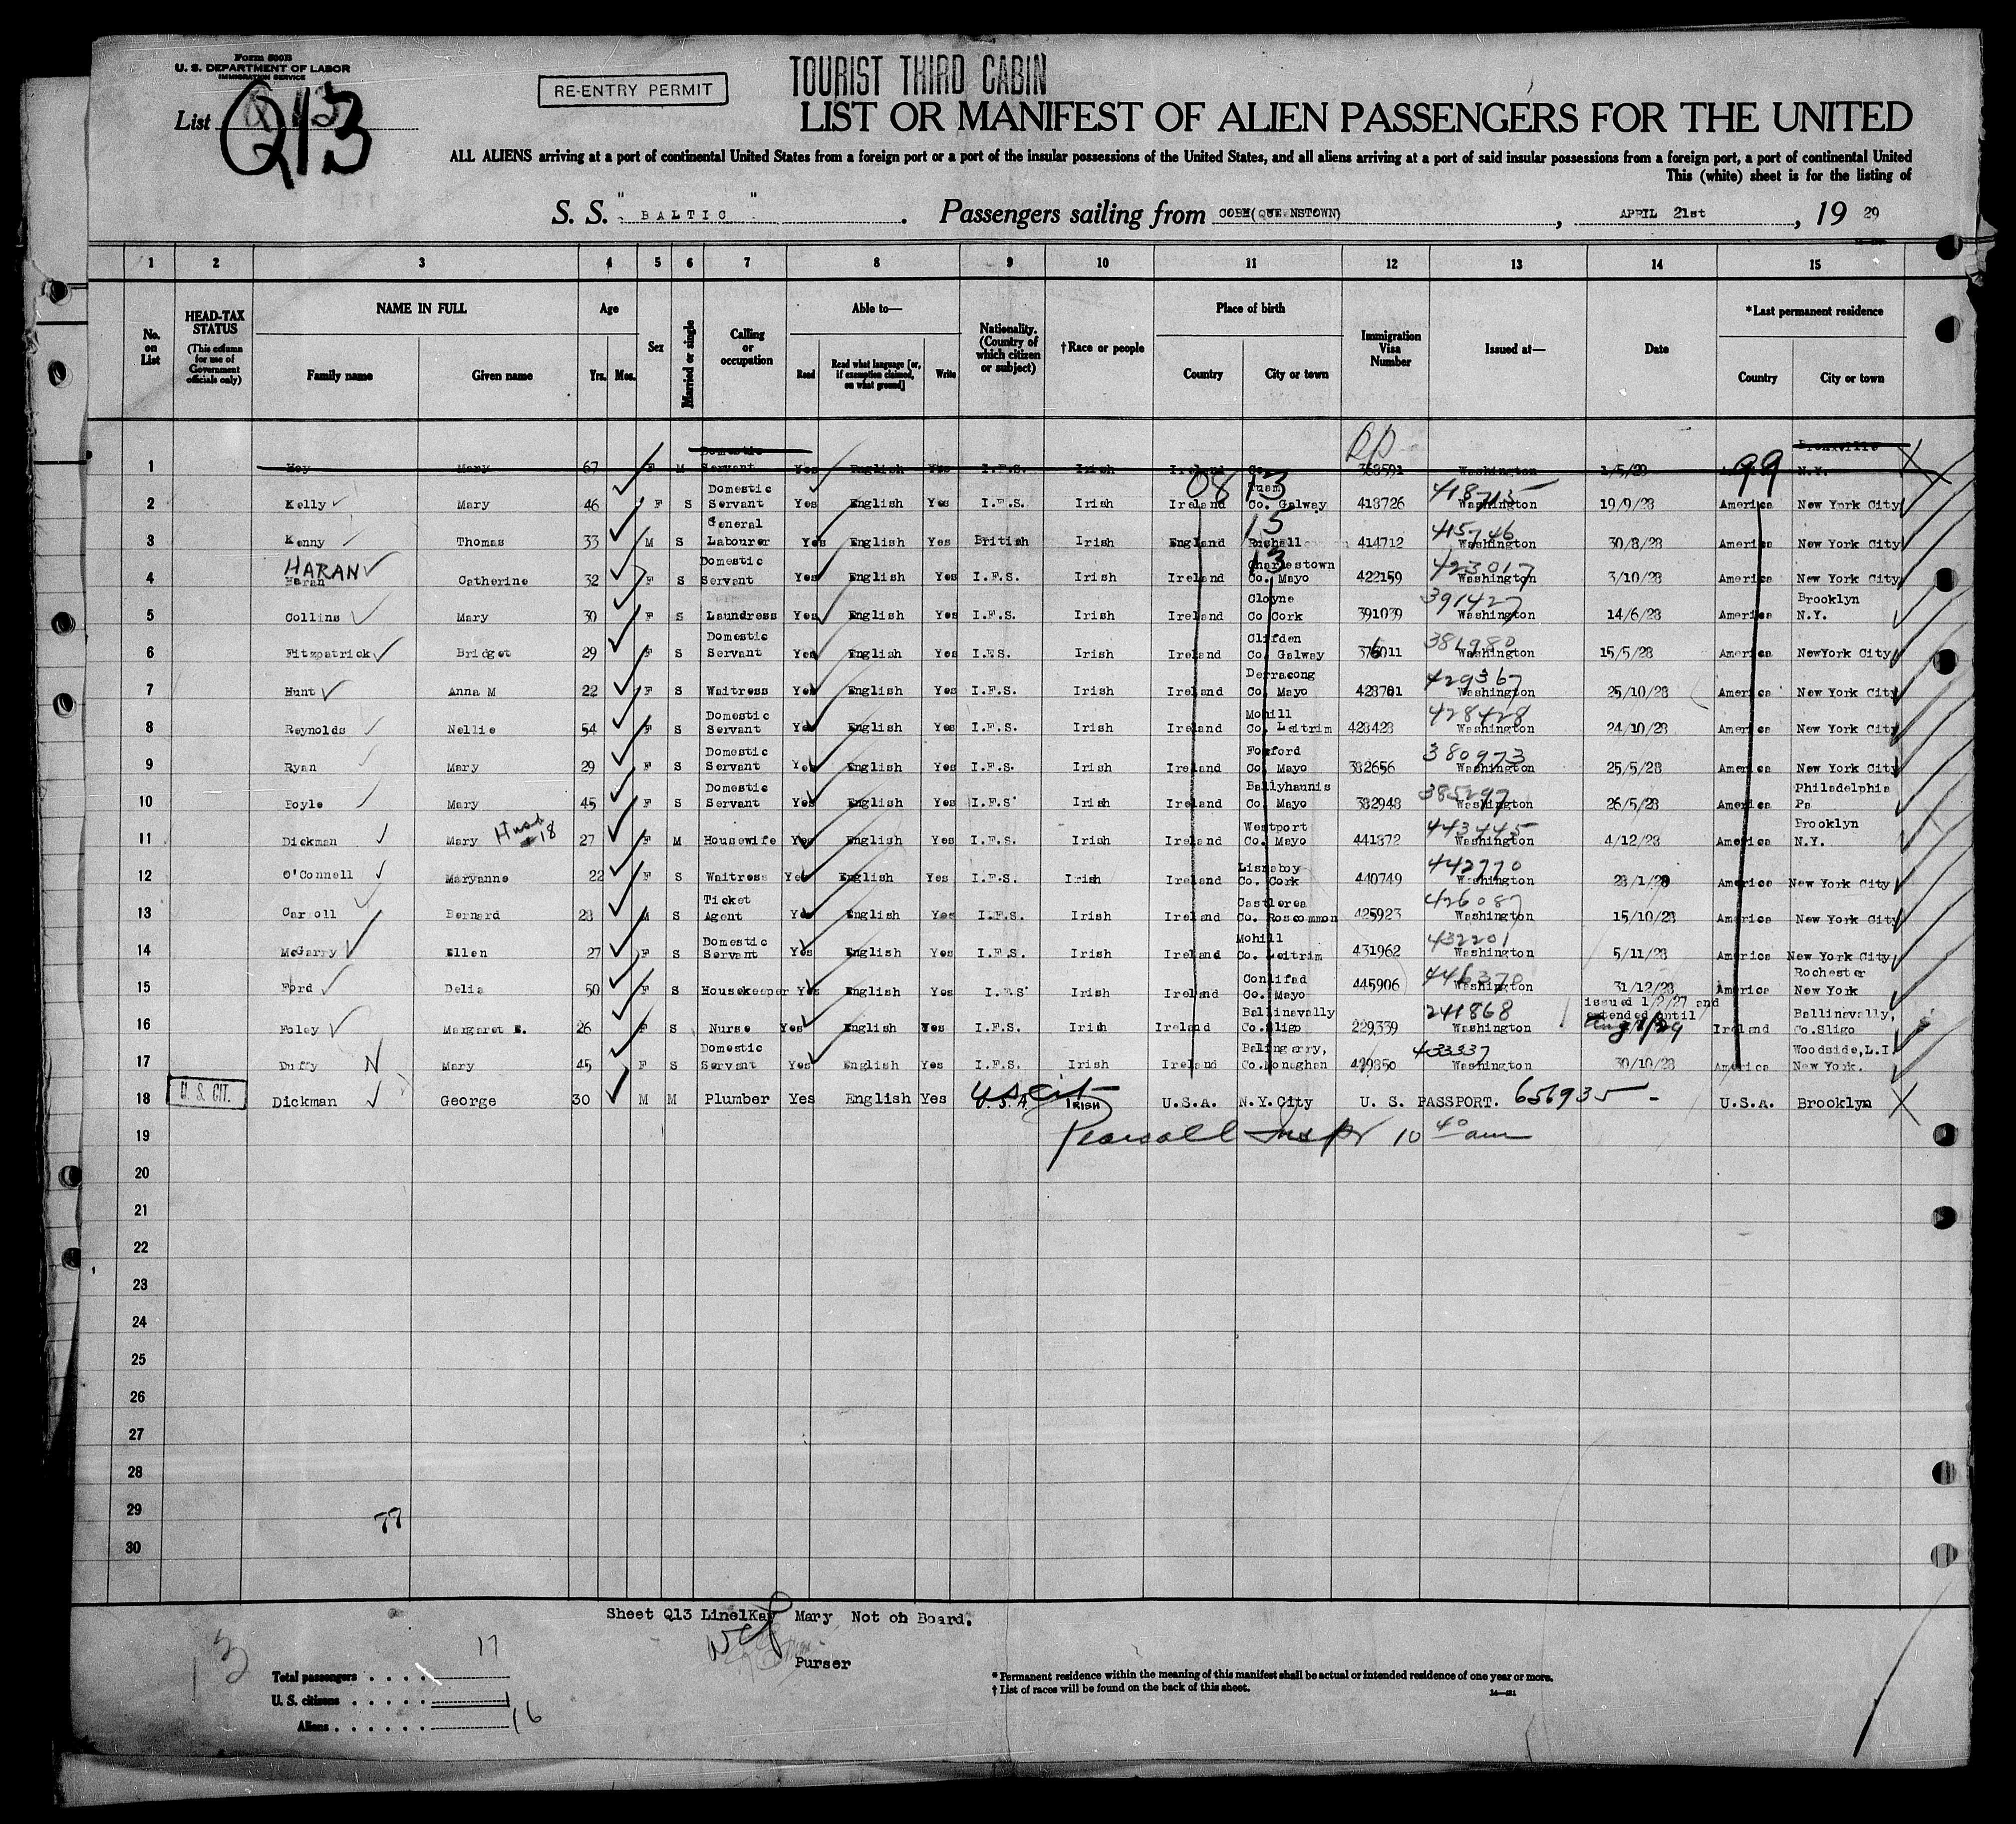 Form 500B
U. S. DEPARTMENT OF LABOR
IMMIGRATION SERVICE
List Q13
RE-ENTRY PERMIT
TOURIST THIRD CABIN
LIST OR MANIFEST OF ALIEN PASSENGERS FOR THE UNITED
ALL ALIENS arriving at a port of continental United States from a foreign port or a port of the insular possessions of the United States, and all aliens arriving at a port of said insular possessions from a foreign port, a port of continental United
This (white) sheet is for the listing of
S. S. "BALTIC". Passengers sailing from COBH(QUEENSTOWN), APRIL 21st, 19 29
1 2 3 4 5 6 7 8 9 10 11 12 13 14 15
No. on List
HEAD-TAX STATUS
(This column for use of Government officials only)
NAME IN FULL
Family name Given name
Age
Yrs. Mos.
Sex
Married or single
Calling or occupation
Able to—
Read Read what language [or, if exemption claimed, on what ground] Write
Nationality. (Country of which citizen or subject)
†Race or people
Place of birth
Country City or town
Immigration Visa Number
Issued at—
Date
*Last permanent residence
Country City or town
1 Mary 67 F M Domestic Servant Yes English Yes I.F.S. Irish Ireland Co. 368591 Washington 1/5/28 America Bronxville N.Y.
08 13 99
2 Kelly Mary 46 F S Domestic Servant Yes English Yes I.F.S. Irish Ireland Tuam Co. Galway 418726 418715 Washington 19/9/28 America New York City
3 Kenny Thomas 33 M S General Labourer Yes English Yes British Irish England 15 414712 415746 Washington 30/8/28 America New York City
4 HARAN Haran Catherine 32 F S Domestic Servant Yes English Yes I.F.S. Irish Ireland 13 Charlestown Co. Mayo 422159 423017 Washington 3/10/28 America New York City
5 Collins Mary 30 F S Laundress Yes English Yes I.F.S. Irish Ireland Cloyne Co Cork 391039 391427 Washington 14/6/28 America Brooklyn N.Y.
6 Fitzpatrick Bridget 29 F S Domestic Servant Yes English Yes I.F.S. Irish Ireland Clifden Co. Galway 376011 381980 Washington 15/5/28 America NewYork City
7 Hunt Anna M 22 F S Waitress Yes English Yes I.F.S. Irish Ireland Derracong Co. Mayo 428701 429367 Washington 25/10/28 America New York City
8 Reynolds Nellie 54 F S Domestic Servant Yes English Yes I.F.S. Irish Ireland Mohill Co. Leitrim 428428 428428 Washington 24/10/28 America New York City
9 Ryan Mary 29 F S Domestic Servant Yes English Yes I.F.S. Irish Ireland Foxford Co. Mayo 382656 380973 Washington 25/5/28 America New York City
10 Boyle Mary 45 F S Domestic Servant Yes English Yes I.F.S Irish Ireland Ballyhaunis Co. Mayo 382948 385297 Washington 26/5/28 America Philadelphia Pa
11 Dickman Mary Husb 18 27 F M Housewife Yes English Yes I.F.S. Irish Ireland Westport Co. Mayo 441872 443445 Washington 4/12/28 America Brooklyn N.Y.
12 O'Connell Maryanne 22 F S Waitress Yes English Yes I.F.S. Irish Ireland Co. Cork 440749 442770 Washington America New York City
13 Carroll Bernard 28 M S Ticket Agent Yes English Yes I.F.S. Irish Ireland Castlerea Co. Roscommon 425923 426087 Washington 15/10/28 America New York City
14 McGarry Ellen 27 F S Domestic Servant Yes English Yes I.F.S. Irish Ireland Mohill Co. Leitrim 431962 432201 Washington 5/11/28 America New York City
15 Ford Delia 50 F S Housekeeper Yes English Yes I.F.S Irish Ireland Conlifad Co. Mayo 445906 446370 Washington 31/12/28 America Rochester New York
16 Foley Margaret E. 26 F S Nurse Yes English Yes I.F.S. Irish Ireland Ballinavally Co.Sligo 229339 241868 Washington issued 1/2/27 and extended until Aug 1/29 Ireland Ballinavally, Co.Sligo
17 Duffy N Mary 45 F S Domestic Servant Yes English Yes I.F.S. Irish Ireland Balingarry, Co.Monaghan 429850 433337 Washington 30/10/28 America Woodside,L.I New York.
18 U. S. CIT. Dickman George 30 M M Plumber Yes English Yes U.S.A. US Cit IRISH U.S.A. N.Y.City U. S. PASSPORT. 656935 - U.S.A. Brooklyn
19 Pearsall Inspr 10 40 am
20
21
22
23
24
25
26
27
28
29 77
30
Sheet Q13 Line1Kay Mary Not on Board.
Purser
13
Total passengers 17
U. S. citizens 1
Aliens 16
* Permanent residence within the meaning of this manifest shall be actual or intended residence of one year or more.
† List of races will be found on the back of this sheet.